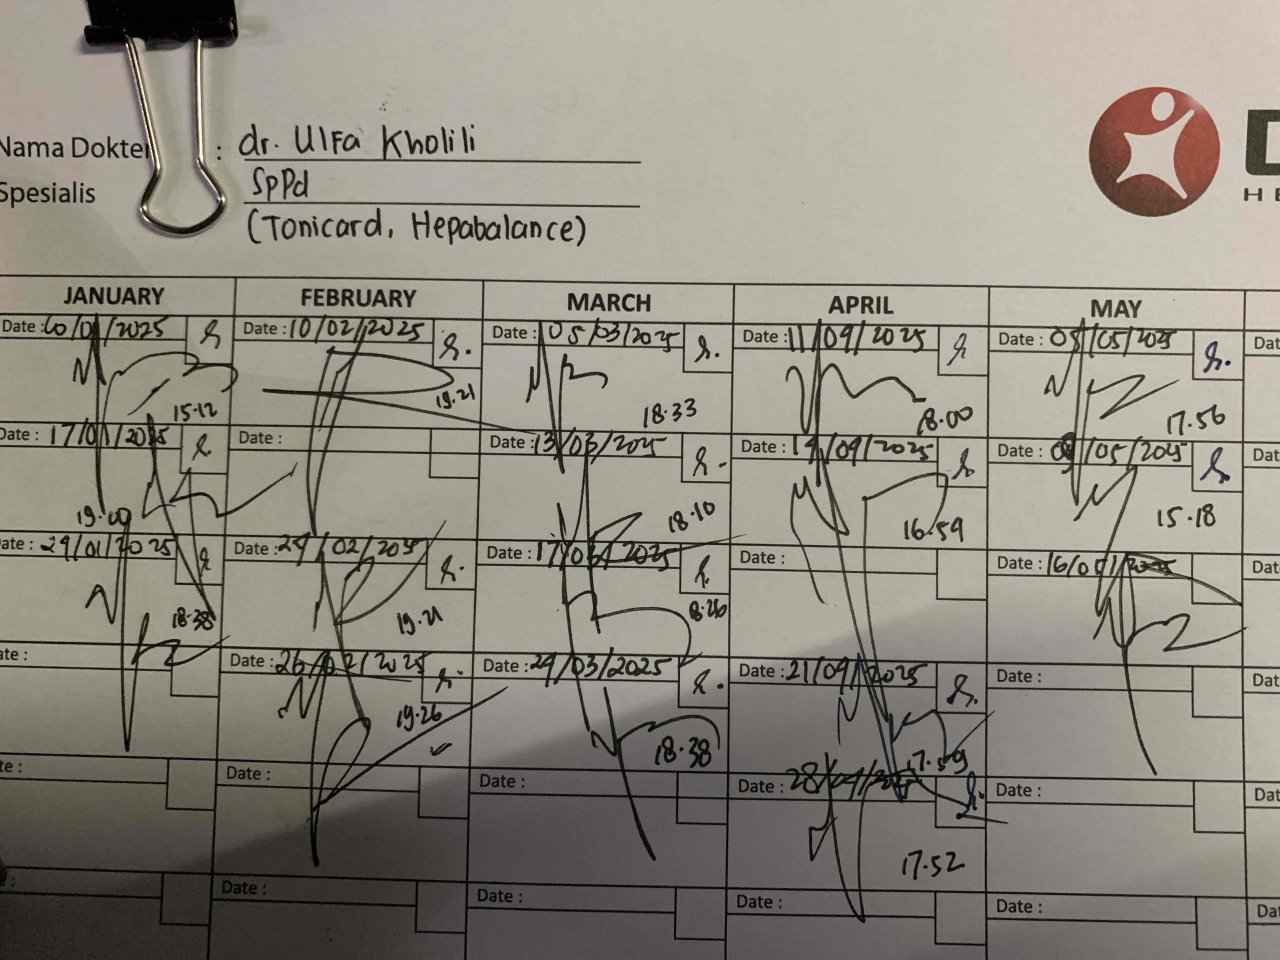 Nama Dokter : dr. Ulfa Kholili
Spesialis SpPd
(Tonicard, Hepabalance)
JANUARY FEBRUARY MARCH APRIL MAY
Date : 10/02/2025 Date : 05/03/2025 Date : 11/04/2025 Date : 05/05/2025
15.12 19.21 18.33 18.00 17.56
Date : 17/01/2025 Date : Date : 13/03/2025 Date : 14/04/2025 Date : 08/05/2025
19.00 18.10 16.59 15.18
Date : 24/01/2025 Date : 24/02/2025 Date : 17/03/2025 Date : Date : 16/05/2025
18.38 19.21 18.26
Date : Date : 26/02/2025 Date : 24/03/2025 Date : 21/04/2025 Date :
19.26 18.38 17.59
Date : Date : Date : Date : 28/04/2025 Date :
17.52
Date : Date : Date : Date :